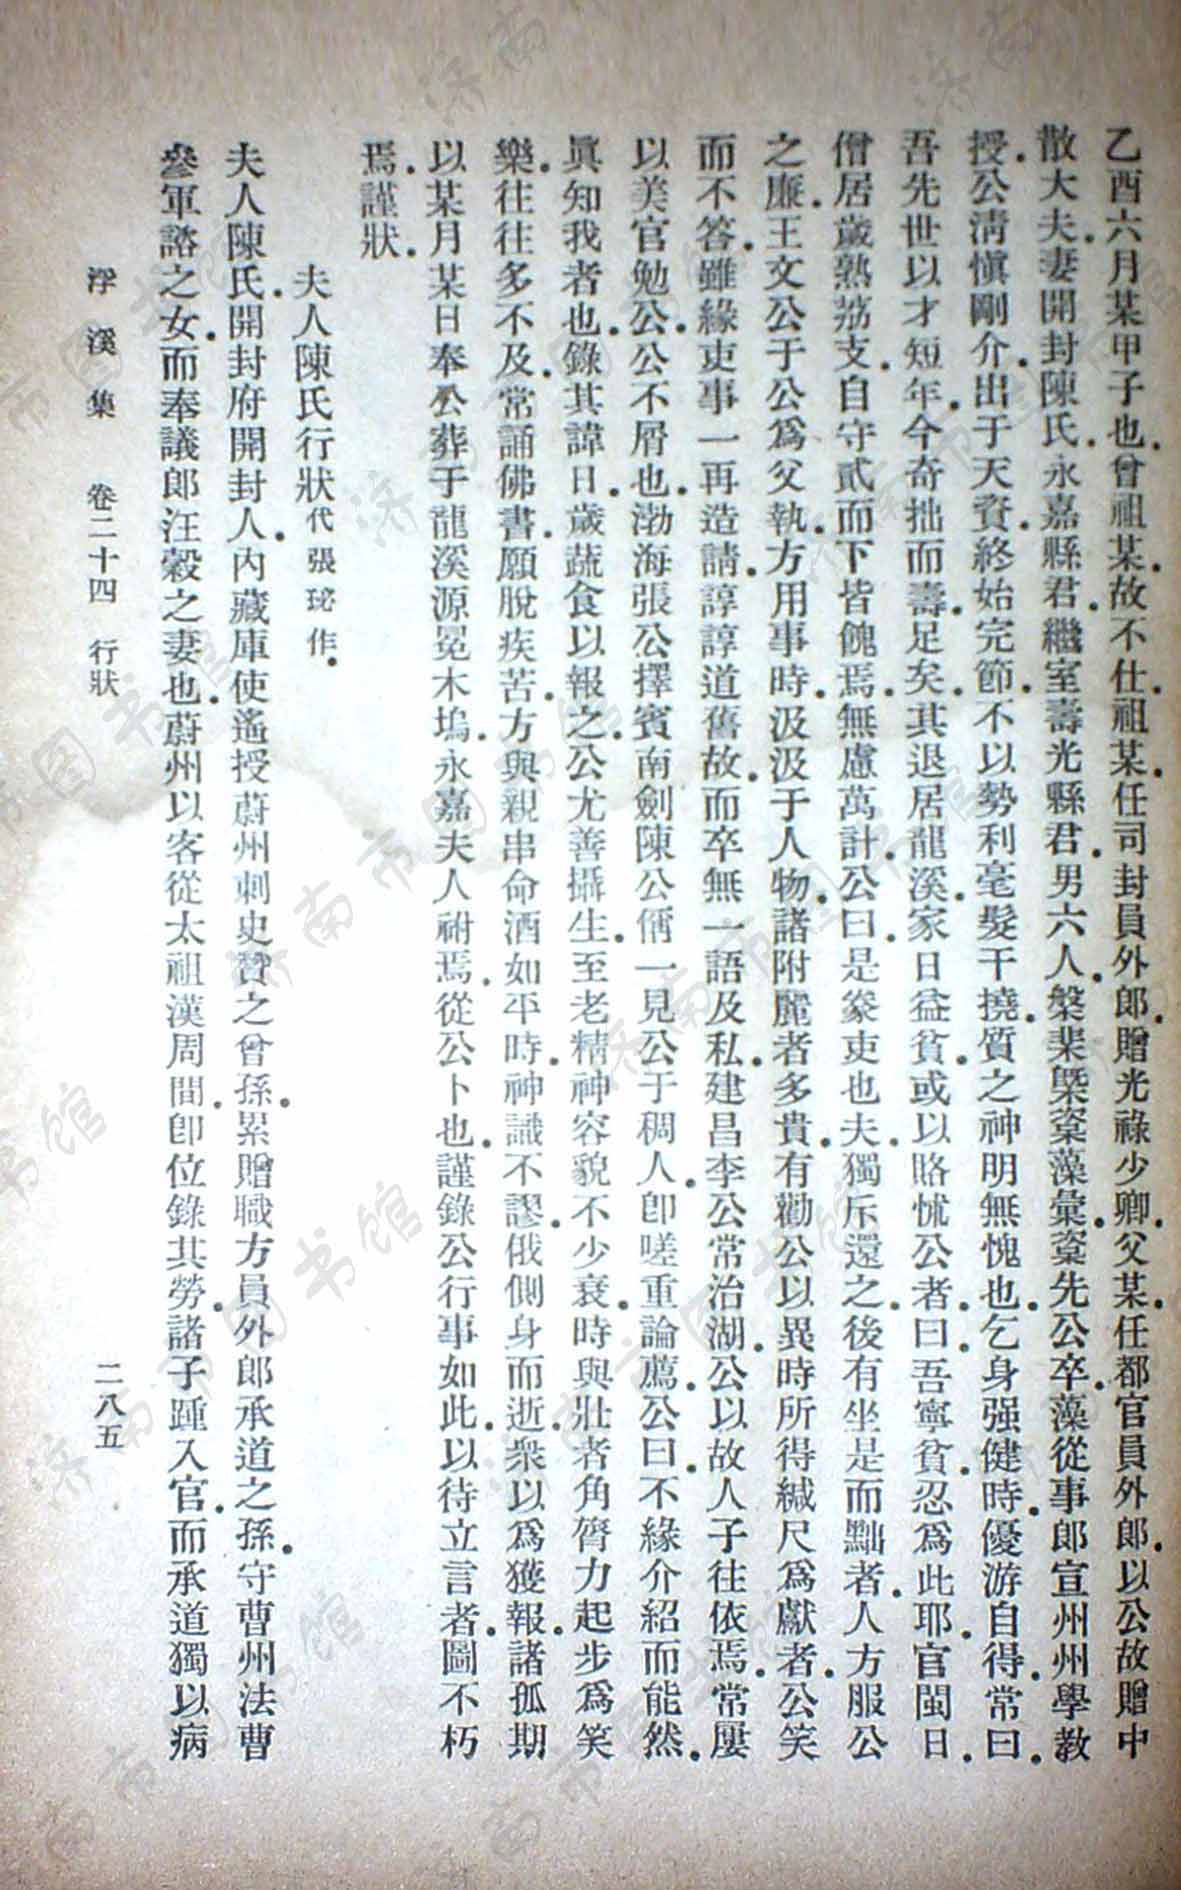 乙酉六月某甲子也。曾祖某。故不仕。祖某。任司封員外郎。贈光祿少卿。父某。任都官員外郎。以公故贈中
散大夫。妻開封陳氏。永嘉縣君。繼室壽光縣君。男六人。槃棐槩楶藻彙。楶先公卒。藻從事郎宣州州學教
授。公淸愼剛介。出于天資。終始完節。不以勢利毫髮干撓。質之神明無愧也。乞身强健時。優游自得。常曰。
吾先世以才短年。今奇拙而壽。足矣。其退居龍溪。家日益貧。或以賂怵公者。曰。吾寧貧。忍爲此耶。官閩日。
僧居歲熟荔支。自守貳而下皆餽焉。無慮萬計。公曰。是豢吏也夫。獨斥還之。後有坐是而黜者。人方服公
之廉。王文公于公爲父執。方用事時。汲汲于人物。諸附麗者多貴。有勸公以異時所得緘尺爲獻者。公笑
而不答。雖緣吏事一再造請。諄諄道舊故。而卒無一語及私。建昌李公常治湖。公以故人子往依焉。常屢
以美官勉公。公不屑也。渤海張公擇賓南劍陳公偁一見公于稠人。卽嗟重論薦。公曰。不緣介紹而能然。
眞知我者也。錄其諱日。歲蔬食以報之。公尤善攝生。至老精神容貌不少衰。時與壯者角膂力起步爲笑
樂。往往多不及。常誦佛書。願脫疾苦。方與親串命酒如平時。神識不謬。俄側身而逝。衆以爲獲報。諸孤期
以某月某日奉公葬于龍溪源冕木塢。永嘉夫人祔焉。從公卜也。謹錄公行事如此。以待立言者。圖不朽
焉。謹狀。
夫人陳氏行狀代張珌作。
夫人陳氏。開封府開封人。內藏庫使遙授蔚州刺史贇之曾孫。累贈職方員外郎承道之孫。守曹州法曹
參軍諮之女。而奉議郎汪穀之妻也。蔚州以客從太祖漢周間。卽位錄其勞。諸子踵入官。而承道獨以病
浮溪集 卷二十四 行狀 二八五
济南市图书馆